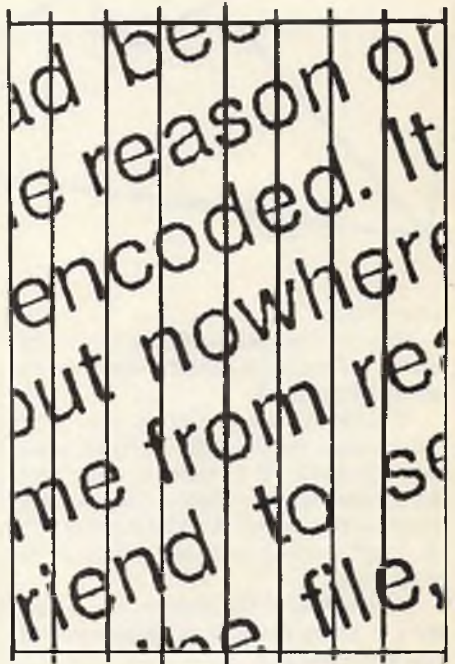 ad bec
e reason or
encoded. It
out nowhere
me from rea
riend to se
the file,